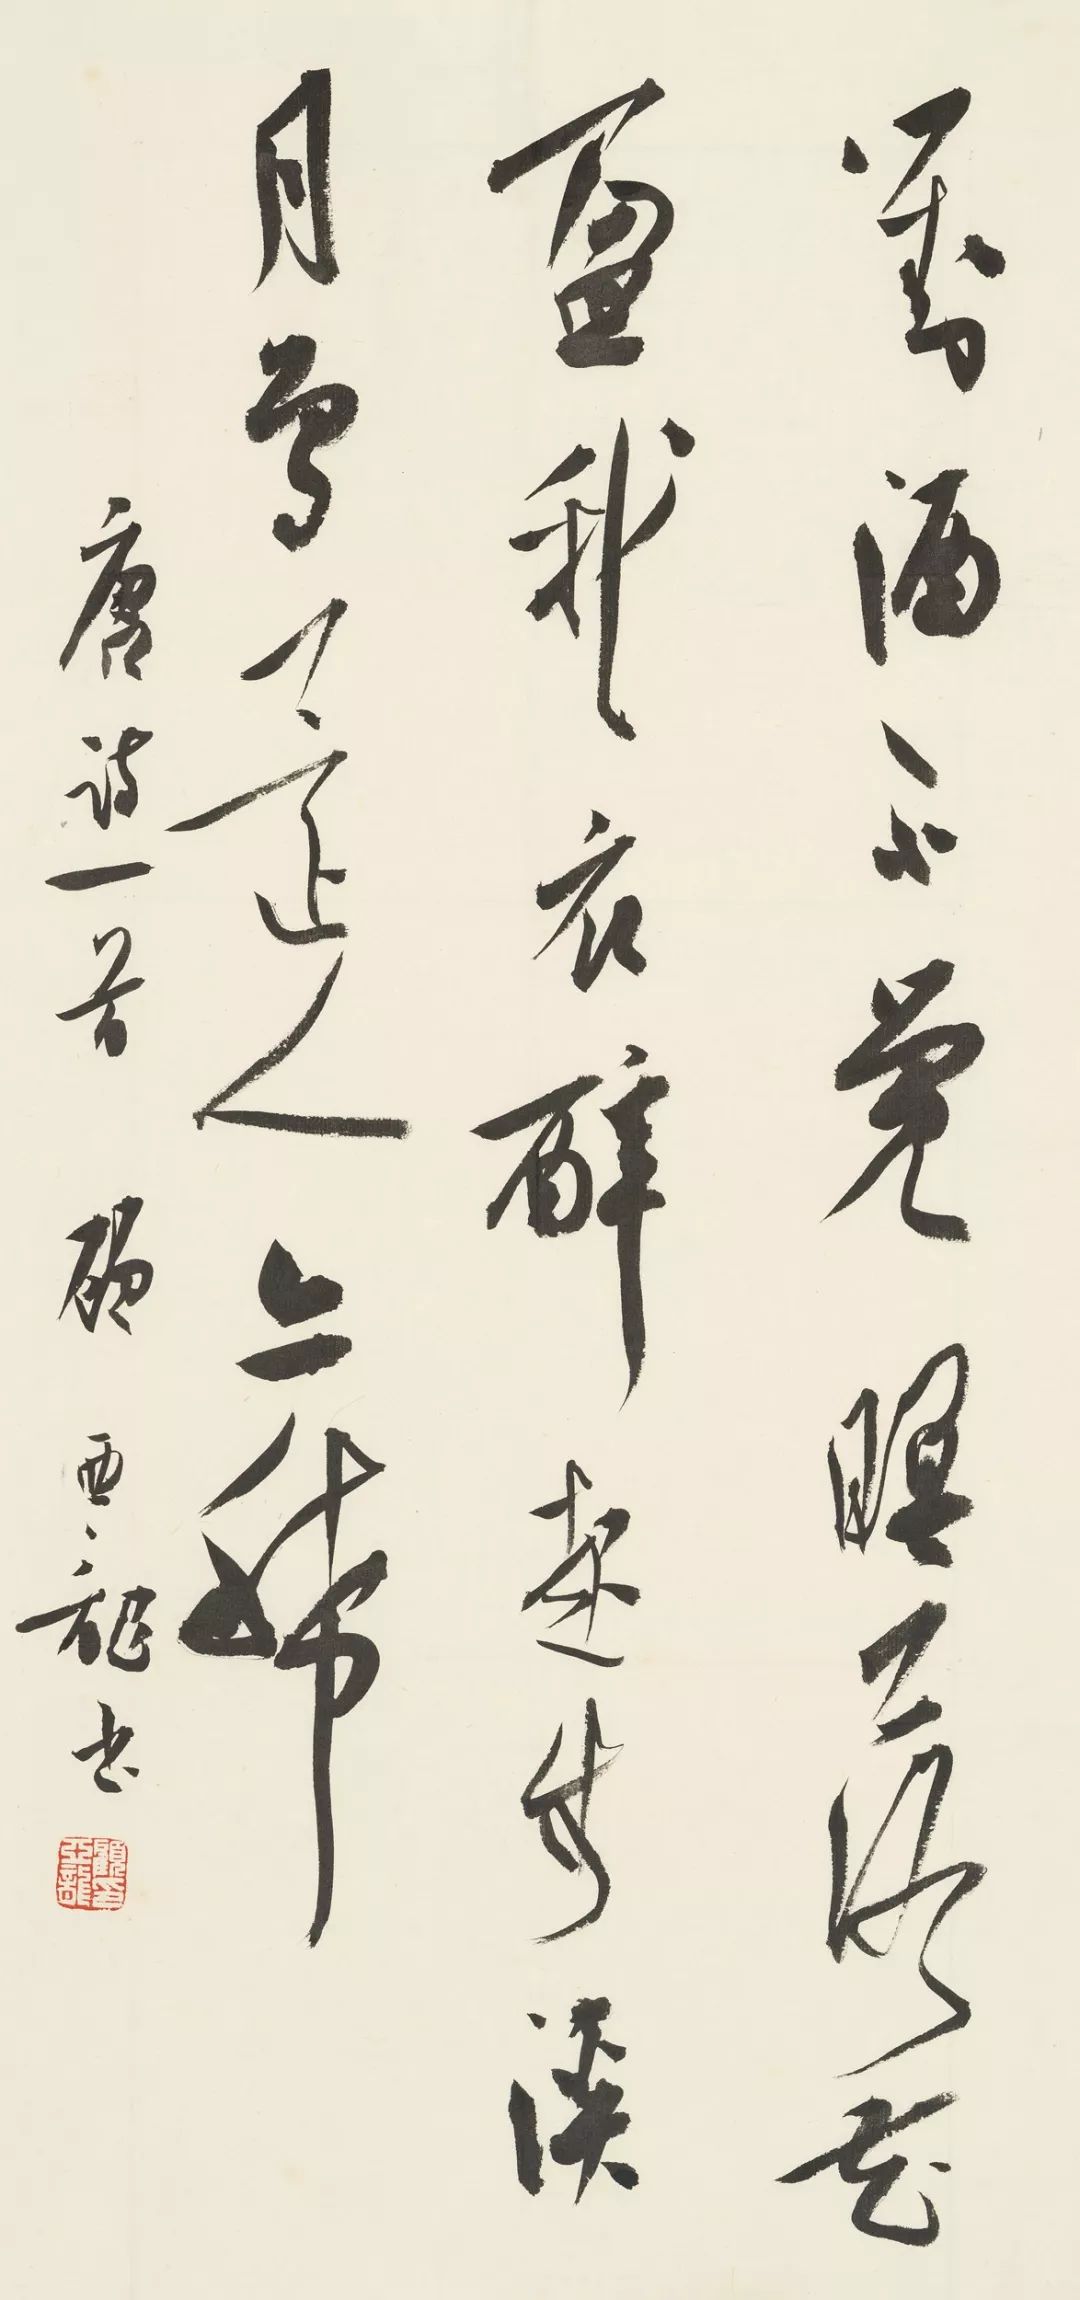 對酒不覺暝落花
盈我衣醉起步溪
月鳥還人亦稀
唐詩一首 顧亞龍書
顧亞龍